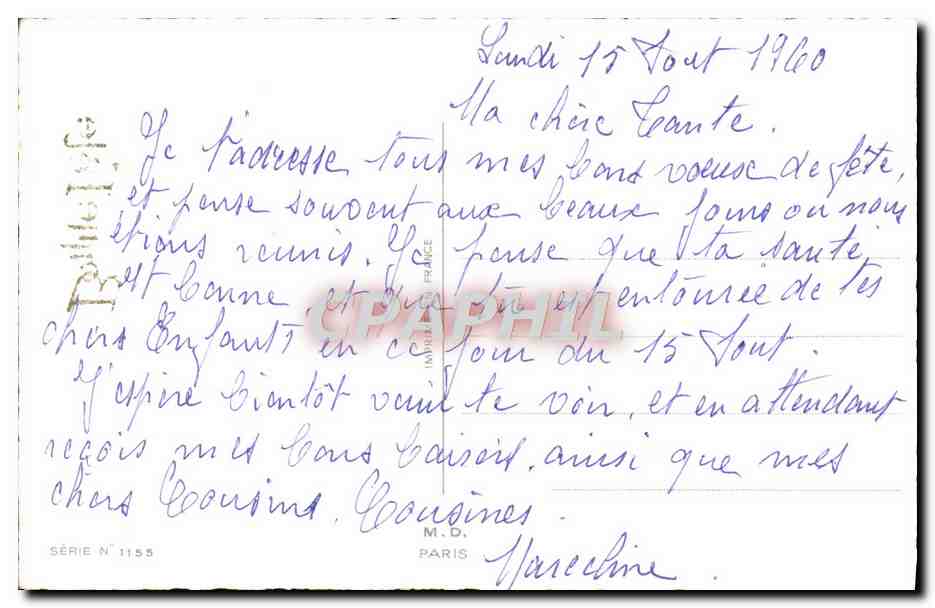 Lundi 15 Aout 1960
Ma chère Tante.
Je t'adresse tous mes bons voeux de fête,
et pense souvent aux beaux jours ou nous
étions réunis. Je pense que ta santé
est bonne, et que tu es entourée de tes
chers Enfants en ce jour du 15 Aout.
J'espère bientôt venir te voir, et en attendant
reçois mes bons baisers, ainsi que mes
chers Cousins. Cousines.
Marceline.
IMPRIMÉ EN FRANCE
CPAPHIL
SÉRIE N° 1155
M.D.
PARIS